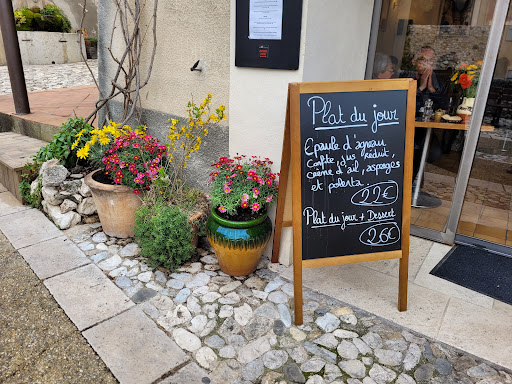 Plat du jour
Epaule d'agneau
Confite, jus réduit,
crème d'ail, asperges
et polenta.
22€
Plat du jour + Dessert
26€